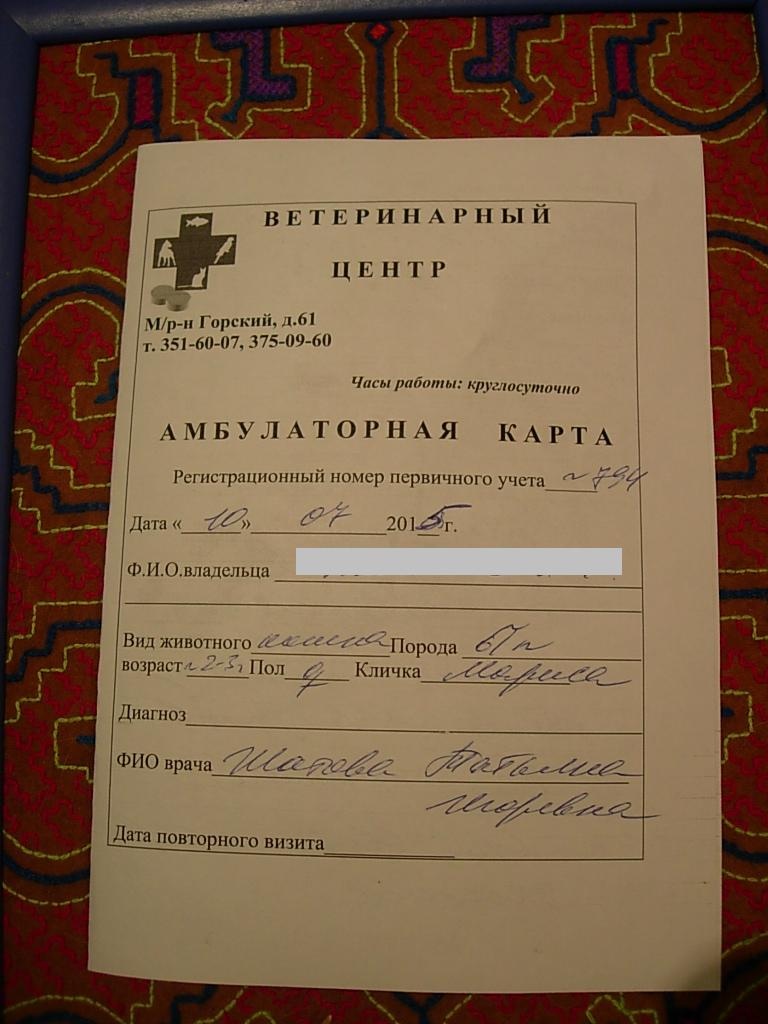 ВЕТЕРИНАРНЫЙ
ЦЕНТР
М/р-н Горский, д.61
т. 351-60-07, 375-09-60
Часы работы: круглосуточно
АМБУЛАТОРНАЯ КАРТА
Регистрационный номер первичного учета ~794
Дата «10» 07 2015г.
Ф.И.О.владельца
Вид животного кошка Порода б/п
возраст ~2-3г Пол ♀ Кличка Мариса
Диагноз
ФИО врача Шатова Татьяна
Игоревна
Дата повторного визита